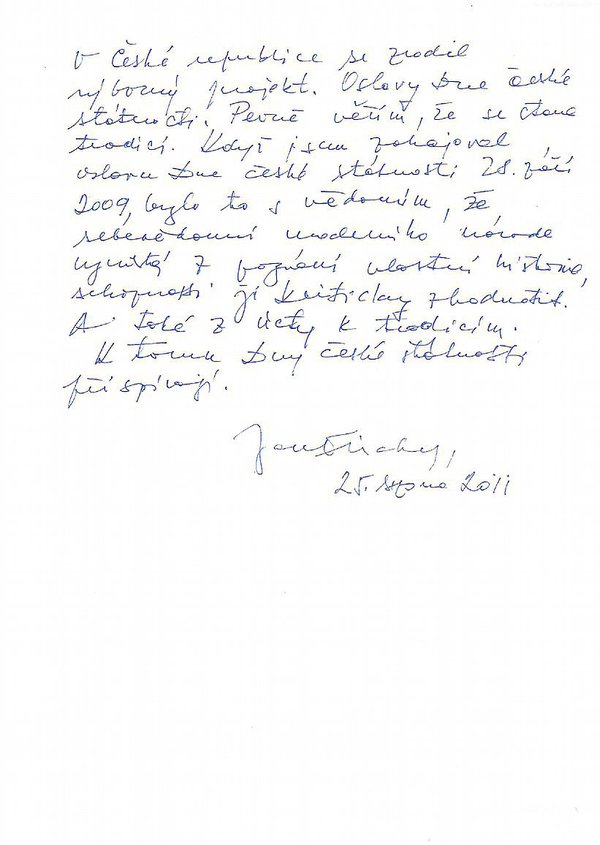 V České republice se zrodil
výborný projekt. Oslavy Dne české
státnosti. Pevně věřím, že se stane
tradicí. Když jsem zahajoval
oslavu Dne české státnosti 28. září
2009, bylo to s vědomím, že
sebevědomí moderního národa
vyniká z poznání vlastní historie,
schopnosti ji kriticky zhodnotit.
A také z úcty k tradicím.
K tomu Dny české státnosti
přispívají.
25. srpna 2011